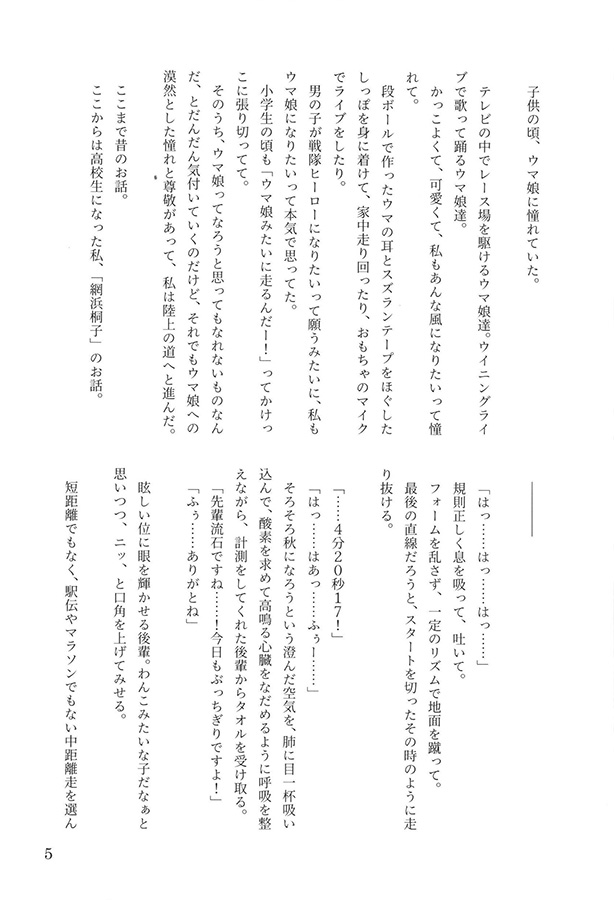 子供の頃、ウマ娘に憧れていた。
テレビの中でレース場を駆けるウマ娘達。ウイニングライ
ブで歌って踊るウマ娘達。
かっこよくて、可愛くて、私もあんな風になりたいって憧
れて。
段ボールで作ったウマの耳とスズランテープをほぐした
しっぽを身に着けて、家中走り回ったり、おもちゃのマイク
でライブをしたり。
男の子が戦隊ヒーローになりたいって願うみたいに、私も
ウマ娘になりたいって本気で思ってた。
小学生の頃も「ウマ娘みたいに走るんだー！」ってかけっ
こに張り切ってて。
そのうち、ウマ娘ってなろうと思ってもなれないものなん
だ、とだんだん気付いていくのだけど、それでもウマ娘への
漠然とした憧れと尊敬があって、私は陸上の道へと進んだ。
ここまで昔のお話。
ここからは高校生になった私、「網浜桐子」のお話。
「はっ……はっ……はっ……」
規則正しく息を吸って、吐いて。
フォームを乱さず、一定のリズムで地面を蹴って。
最後の直線だろうと、スタートを切ったその時のように走
り抜ける。
「……4分20秒17！」
「はっ……はあっ……ふぅー……」
そろそろ秋になろうという澄んだ空気を、肺に目一杯吸い
込んで、酸素を求めて高鳴る心臓をなだめるように呼吸を整
えながら、計測をしてくれた後輩からタオルを受け取る。
「先輩流石ですね……！今日もぶっちぎりですよ！」
「ふぅ……ありがとね」
眩しい位に眼を輝かせる後輩。わんこみたいな子だなぁと
思いつつ、ニッ、と口角を上げてみせる。
短距離でもなく、駅伝やマラソンでもない中距離走を選ん
5